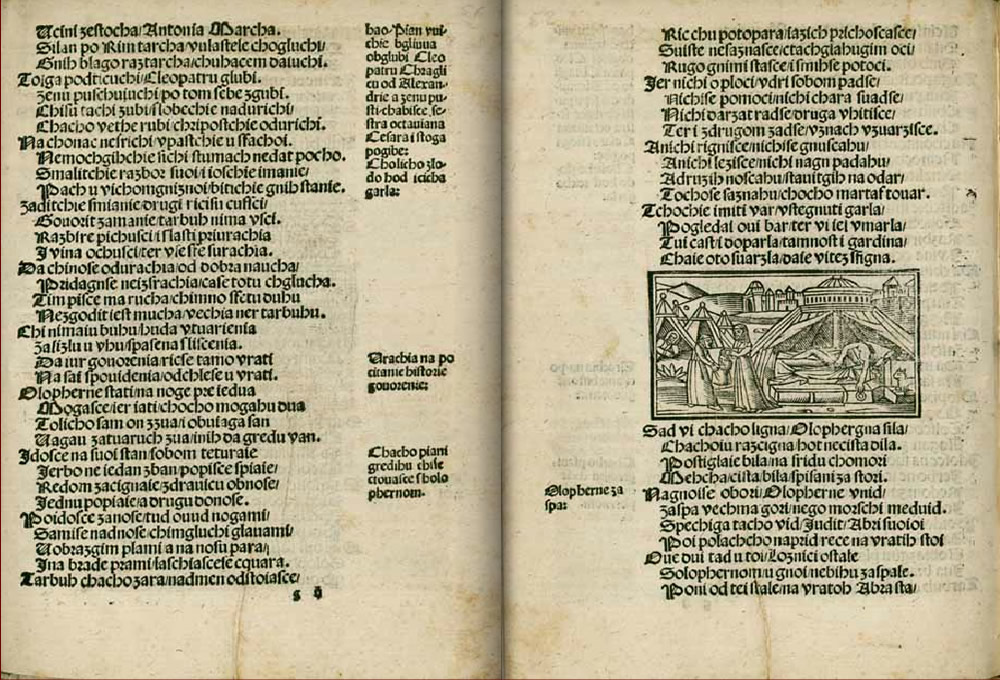 Ucini zestocha/Antonia Marcha.
Silan po Rim tarcha/vulastele chogluchi/
Gnih blago raztarcha/chuhacem daiuchi.
Toiga podticuchi/Cleopatru glubi.
Zenu puschuiuchi/po tom sebe zgubi.
Chisu tachi zubi/slobechie nadurichi/
Chacho vethe rubi/chripostchie odurichi.
Na chonac nesrichi/vpastchie u sfachoi.
Nemochgihchie sichi stumach nedat pocho.
Smalitchie razbor suoi/i ioschie imanie/
Pach u vichomgniznoi/bitichie gnih stanie.
Zaditchie smianie/drugi ricisu custci/
Gouorit zamanie/tarbuh nima vsci.
Razbire pichusci/islasti priurachia
I vina ochusci/ter vieste surachia.
Da chinose odurachia/od dobra naucha/
Pridagnse neizfrachia/case totu chglucha.
Tim pisce ma rucha/chimno ssetu duhu
Nezgodit iest mucha/vechia ner tarbuhu.
Chi nimaiu buhu/huda vtuarienia
Zalizlu u vhu/spasena sliscenia.
Da iur gouorenia/ricse tamo vrati
Na sai spouidenia/odchlese u vrati.
Olopherne stati/na noge pre iedua
Mogasce/ier iati/chocho mogahu dua
Tolicho sam on zzua/i obuiaga san
Uagau zatuaruch zua/inih da gredu van.
Idosce na suoi stan/sobom teturaie
Jerbo ne iedan zban/popisce spiaie/
Redom zacignaie/zdrauicu obnose/
Jednu popiaie/a drugu donose.
Poidosce zanose/tud ouud nogami/
Samise nadnose/chimgluchi glauami/
Uobrazgim plami/a na nosu para/
Ina brade prami/laschiascese cquara.
Tarbuh chacho zara/nadmen odstoiasce/
hao/Pian vui-
chie bgliuua
obglubi Cleo
patru Chragli
cu od Alexan-
drie a zenu pu-
sti-chabisce se-
stra octauiana
Cesara i stoga
pogibe:
Cholicho zlo-
do hod icicha
garla:
Urachia na po
citanie historie
gouorenie:
Chacho piani
gredihu chise
ctouasce s holo
phernom.
Ric chu potopara/iazich prichoscasce/
Suiste nesaznasce/ctachglahugim oci/
Rugo gnimi stasce/i smihse potoci.
Jer nichi oploci/vdri sobom padse/
Nichise pomoci/nichi chara suadse/
Nichi darzat radse/druga vhitisce/
Ter i zdrugom zadse/vznach vzuarzisce.
Anichi rignisce/nichise gnuscahu/
Anichi lezisce/nichi nagn padahu/
Adruzih noscahu/staui tgih na odar/
Tochose saznahu/chocho martaf touar.
Tchochie imiti var/vstegnuti garla/
Pogledai oui bar/ter vi iei vmarla/
Tui casti doparla/tamnosti gardina/
Chaie oto suarzla/daie vitez sfigna.
Sad vi chacho ligna/Olophergna sila/
Chachoiu razcigna/hot necista dila.
Postiglaie bila/na sridu chomori
Mehcha/cista bila/spisani za stori.
Nagnoise obori/Olopherne vnid/
Zaspa vechma gori/nego morschi meduid.
Spechiga tacho vid/Judit/Abri suoioi
Poi polachcho naprid rece na vratih stoi
Oue dui tad u toi/Loznici ostale
Solophernom/u gnoi/nebihu zaspale.
Poni od tei stale/na vratoh Abra sta/
Olopherne za
spa: